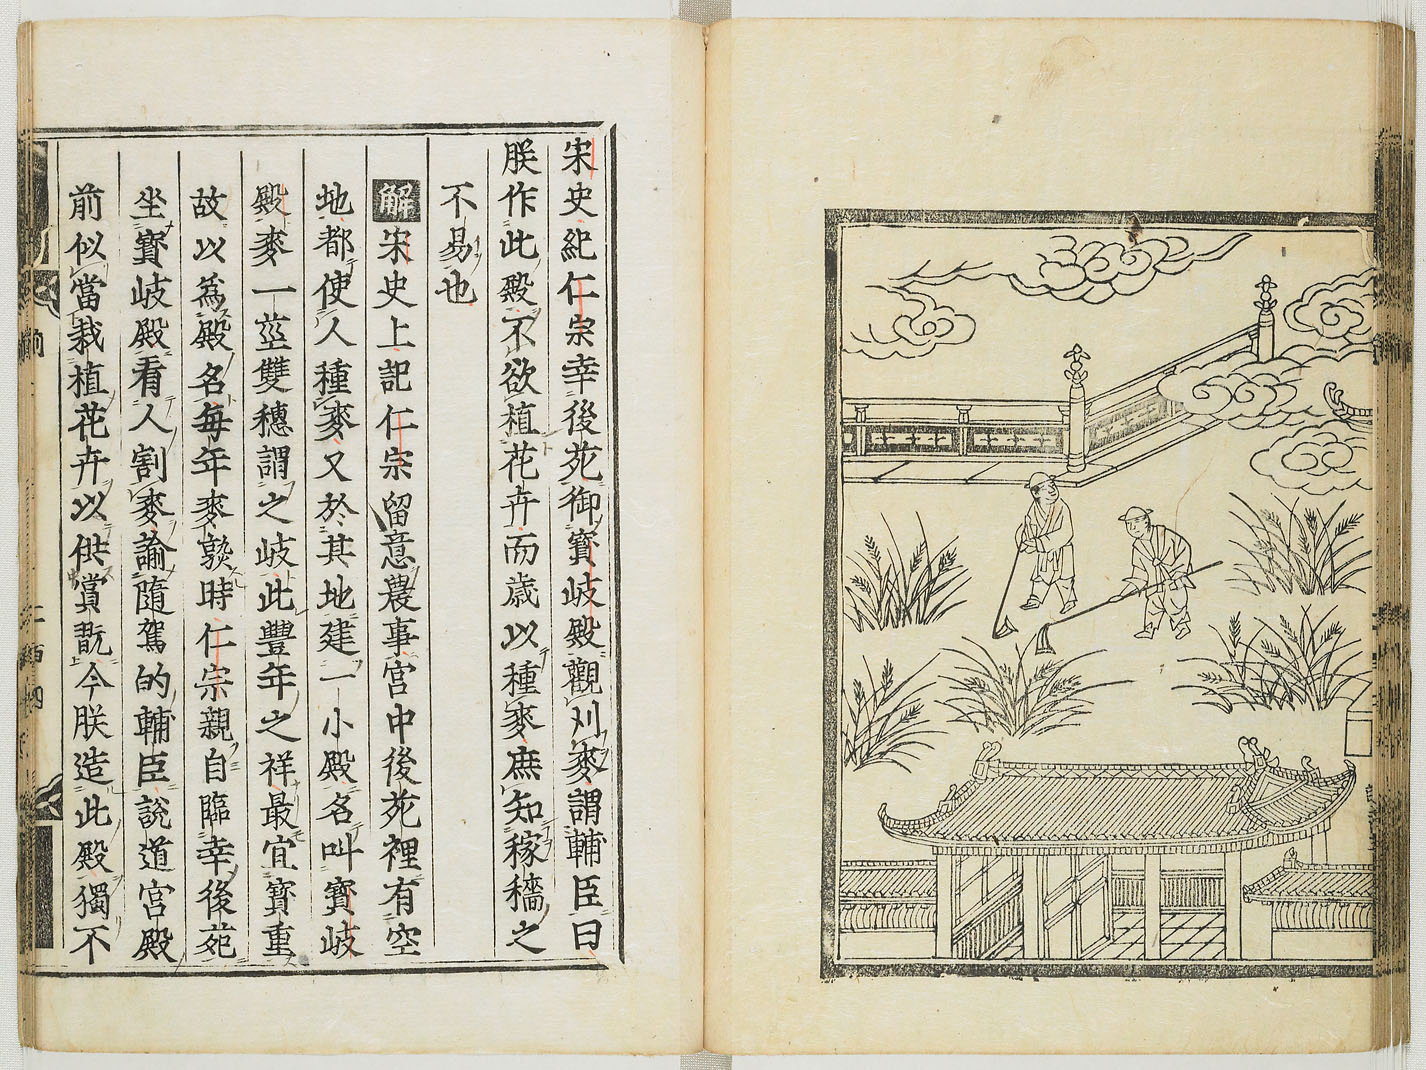 宋史紀仁宗幸後苑御寳岐殿觀刈麥謂輔臣曰
朕作此殿不欲植花卉而歳以種麥庶知稼穡之
不易也
解宋史上記仁宗留意農事宮中後苑裡有空
地都使人種麥又於其地建一小殿名叫寳岐
殿麥一莖雙穗謂之岐此豐年之祥最宜寳重
故以為殿名每年麥熟時仁宗親自臨幸後苑
坐寳岐殿看人割麥諭隨駕的輔臣說道宮殿
前似當栽植花卉以供賞翫今朕造此殿獨不